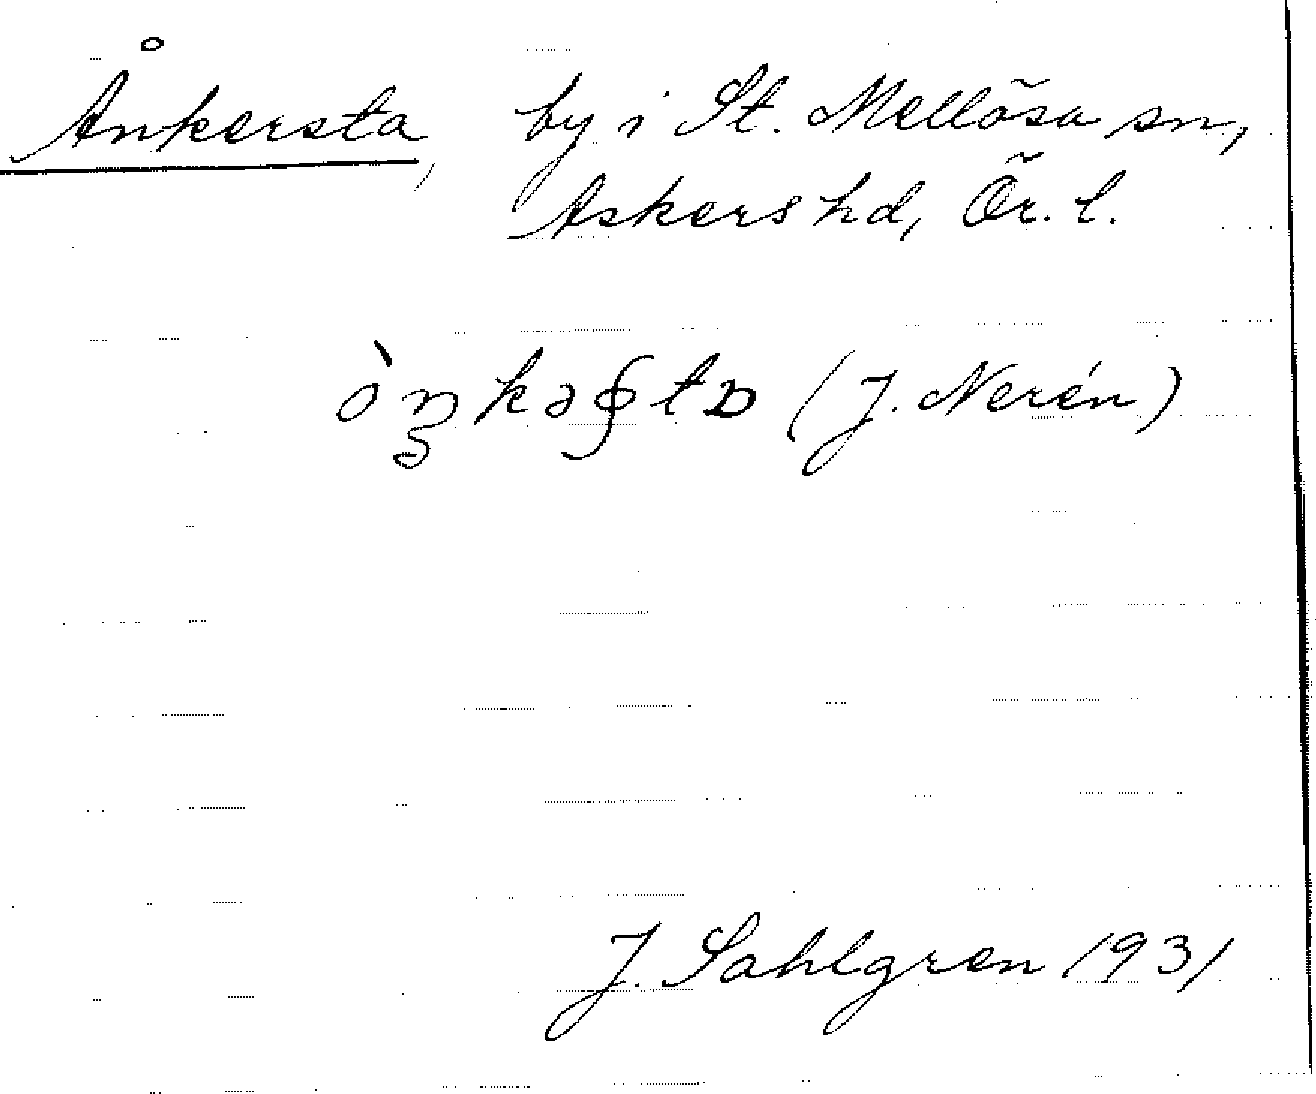 Ånkersta, by i St. Mellösa sn,
Askers hd, Ör. l.
(J. Nerén)
J. Sahlgren 1931